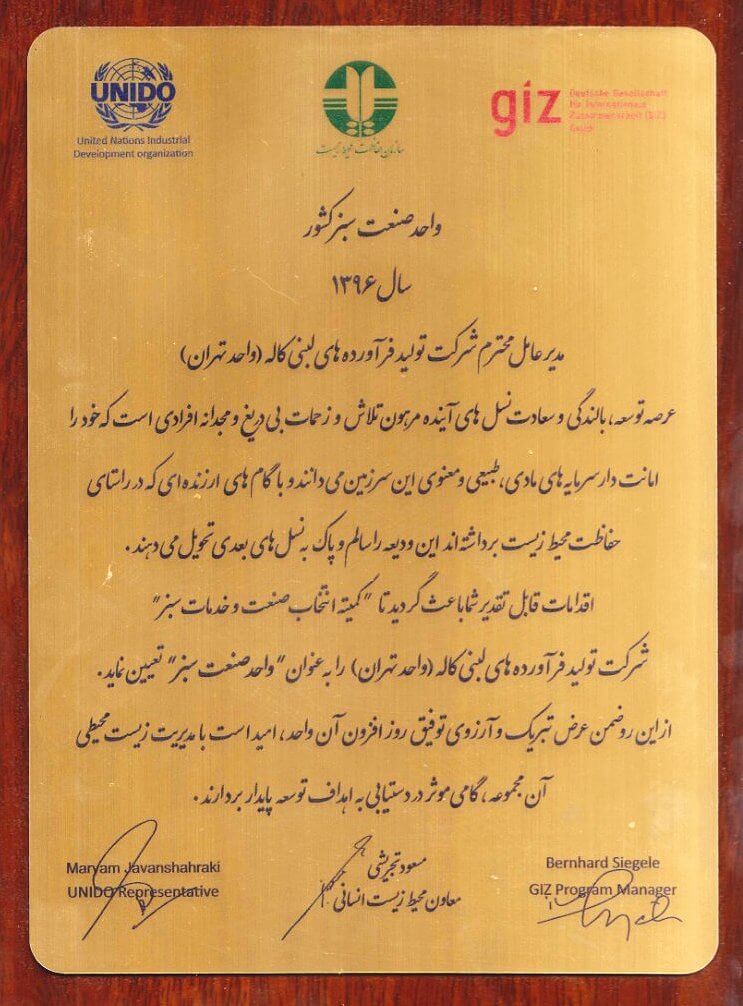 UNIDO
United Nations Industrial
Development organization
سازمان حفاظت محیط زیست
giz
Deutsche Gesellschaft
für Internationale
Zusammenarbeit (GIZ)
GmbH
واحد صنعت سبز کشور
سال ۱۳۹۶
مدیر عامل محترم شرکت تولید فرآورده های لبنی کاله (واحد تهران)
عرصه توسعه، بالندگی و سعادت نسل های آینده مرهون تلاش و زحمات بی دریغ و مجدانه افرادی است که خود را
امانت دار سرمایه های مادی، طبیعی و معنوی این سرزمین می دانند و با گام های ارزنده ای که در راستای
حفاظت محیط زیست برداشته اند این ودیعه را سالم و پاک به نسل های بعدی تحویل می دهند.
اقدامات قابل تقدیر شما باعث گردید تا "کمیته انتخاب صنعت و خدمات سبز"
شرکت تولید فرآورده های لبنی کاله (واحد تهران) را به عنوان "واحد صنعت سبز" تعیین نماید.
از این رو ضمن عرض تبریک و آرزوی توفیق روز افزون آن واحد، امید است با مدیریت زیست محیطی
آن مجموعه، گامی موثر در دستیابی به اهداف توسعه پایدار بردارند.
Maryam Javanshahraki
UNIDO Representative
مسعود تجریشی
معاون محیط زیست انسانی
Bernhard Siegele
GIZ Program Manager